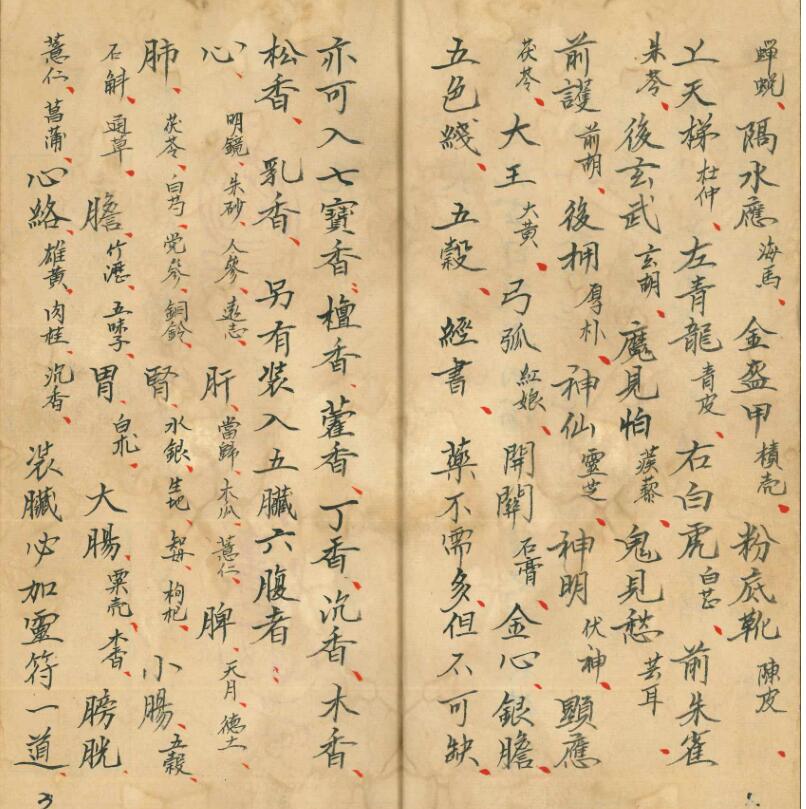 蟬蛻、隔水應 海馬、金盔甲 積壳、粉底靴 陳皮、
上天梯 杜仲、左青龍 青皮、右白虎 白芷、前朱雀
朱苓、後玄武 玄胡、魔見怕 蒺藜、鬼見愁 芸耳、
前護 前胡、後拥 厚朴、神仙 靈芝、神明 伏神、顯應
茯苓、大王 大黃、弓弧 紅娘、開關 石膏、金心、銀膽、
五色綫、五穀、經書、藥不需多、但不可缺
亦可入七寶香：檀香、藿香、丁香、沉香、木香、
松香、乳香、另有装入五臟六腹者：
心 明鏡、朱砂、人參、遠志、肝、當歸、木瓜、薏仁、脾、天月、德土、
肺、茯苓、白芍、党參、銅鈴、腎、水銀、生地、知母、枸杞、小腸、五穀、
石斛、通草、膽、竹瀝、五味子、胃、白朮、大腸、粟壳、木香、膀胱
薏仁、菖蒲、心絡、雄黃、肉桂、沉香、装臟必加靈符一道、